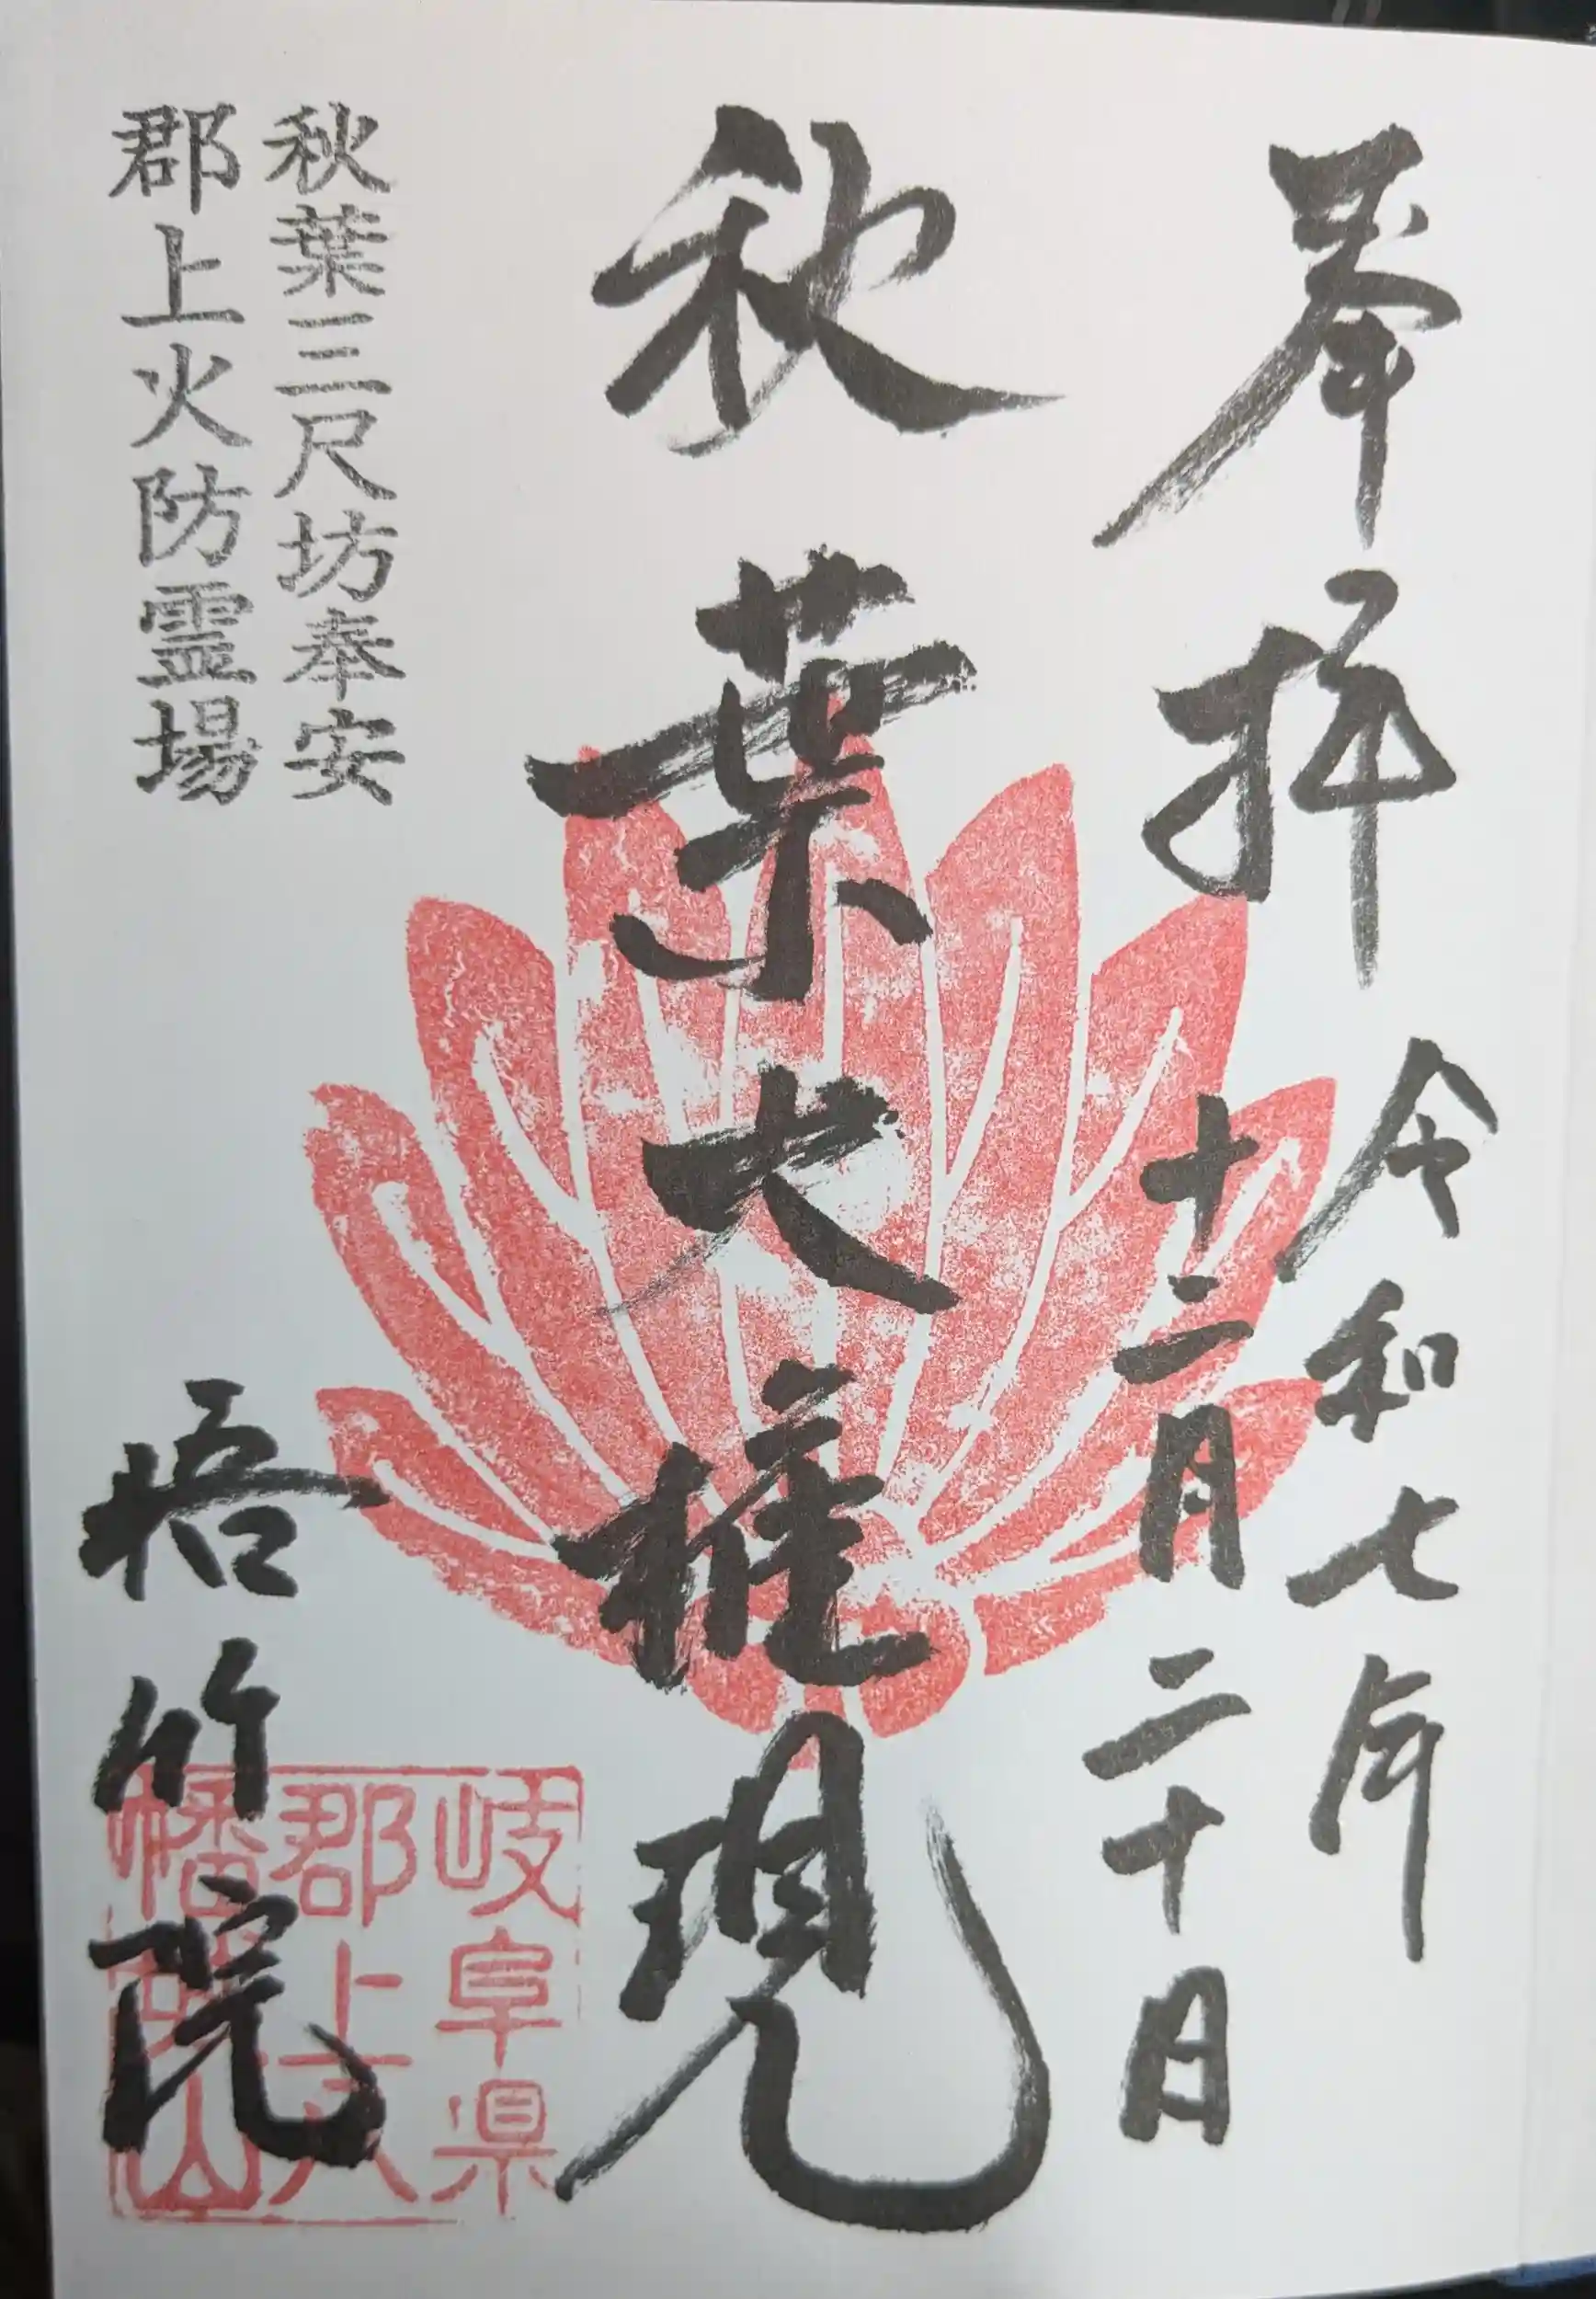 奉拝
令和七年
十二月二十日
秋葉大権現
秋葉三尺坊奉安
郡上火防霊場
悟竹院
岐阜県
郡上八
幡 山